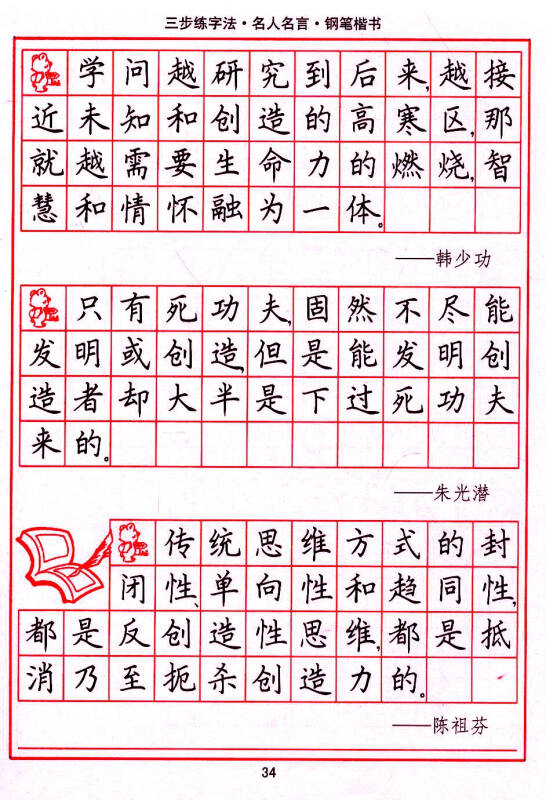 三步练字法·名人名言·钢笔楷书
学问越研究到后来,越接
近未知和创造的高寒区,那
就越需要生命力的燃烧,智
慧和情怀融为一体。
——韩少功
只有死功夫,固然不尽能
发明或创造,但是能发明创
造者却大半是下过死功夫
来的。
——朱光潜
传统思维方式的封
闭性、单向性和趋同性,
都是反创造性思维,都是抵
消乃至扼杀创造力的。
——陈祖芬
34